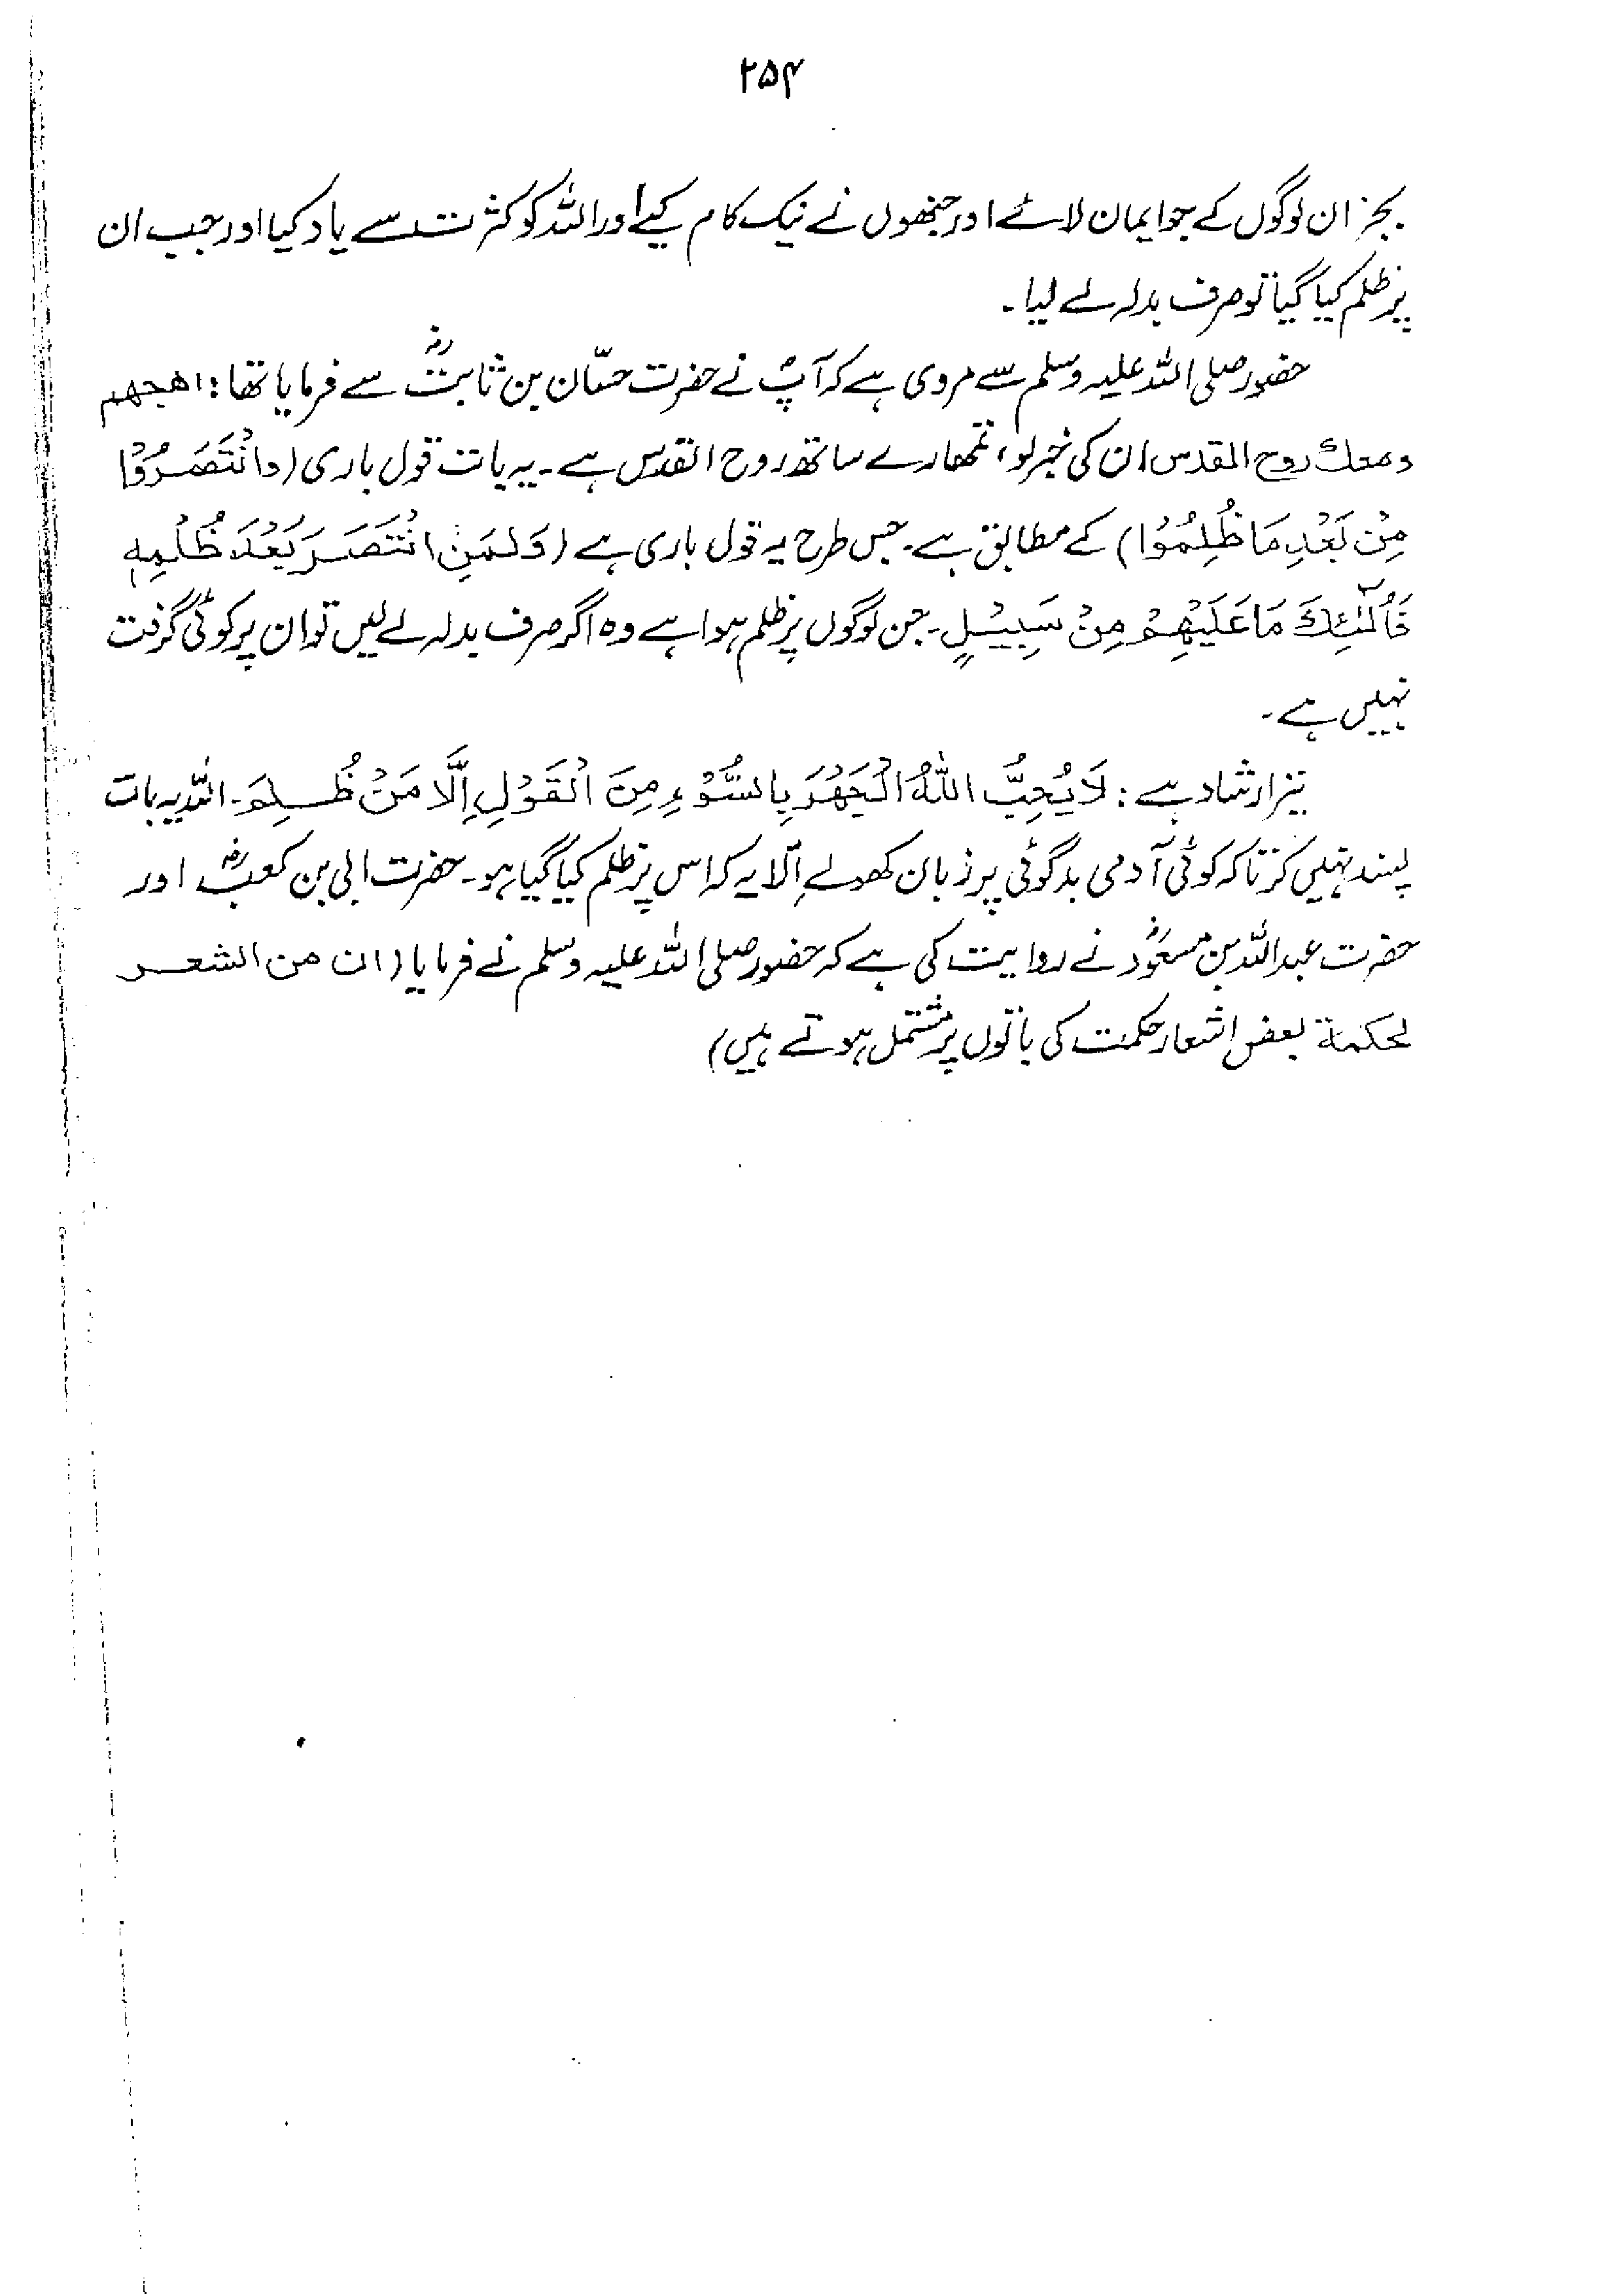 ۲۵۴
بجز ان لوگوں کے جو ایمان لائے اور جنھوں نے نیک کام کیے اور اللہ کو کثرت سے یاد کیا اور جب ان
پر ظلم کیا گیا تو صرف بدلہ لے لیا۔
حضور صلی اللہ علیہ وسلم سے مروی ہے کہ آپؐ نے حضرت حسّان بن ثابتؓ سے فرمایا تھا: اھجھم
ومعك روح القدس ان کی خبر لو، تمھارے ساتھ روح القدس ہے۔ یہ بات قول باری (وَانْتَصَرُوْا
مِنْ بَعْدِ مَا ظُلِمُوْا) کے مطابق ہے۔ جس طرح یہ قول باری ہے (وَلَمَنِ انْتَصَرَ بَعْدَ ظُلْمِهٖ
فَاُولٰٓئِكَ مَا عَلَيْهِمْ مِنْ سَبِيْلٍ۔ جن لوگوں پر ظلم ہوا ہے وہ اگر صرف بدلہ لے لیں تو ان پر کوئی گرفت
نہیں ہے۔
نیز ارشاد ہے: لَا يُحِبُّ اللّٰهُ الْجَهْرَ بِالسُّوْٓءِ مِنَ الْقَوْلِ اِلَّا مَنْ ظُلِمَ۔ اللہ یہ بات
پسند نہیں کرتا کہ کوئی آدمی بدگوئی پر زبان کھولے اِلّا یہ کہ اس پر ظلم کیا گیا ہو۔ حضرت ابی بن کعبؓ اور
حضرت عبداللہ بن مسعودؓ نے روایت کی ہے کہ حضور صلی اللہ علیہ وسلم نے فرمایا (ان من الشعر
لحكمة بعض اشعار حکمت کی باتوں پر مشتمل ہوتے ہیں)